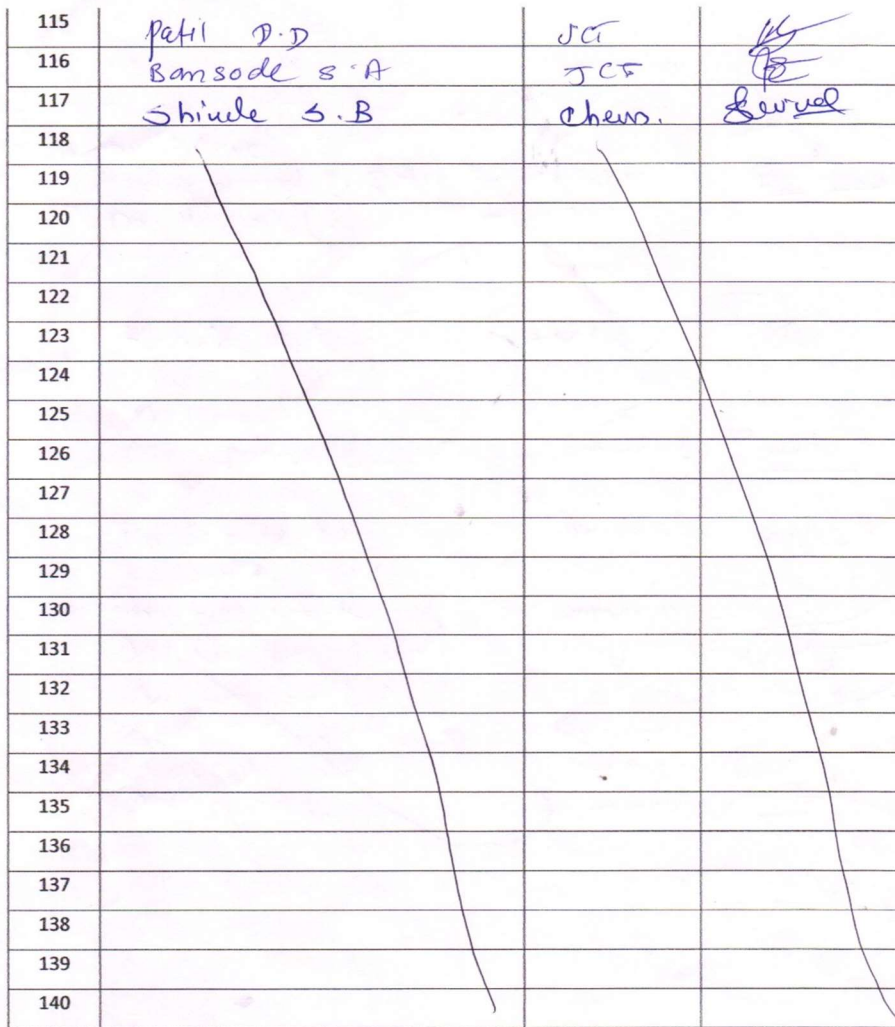 115 Patil D.D JCT
116 Bansode S.A JCT
117 Shinde S.B Chem.
118
119
120
121
122
123
124
125
126
127
128
129
130
131
132
133
134
135
136
137
138
139
140